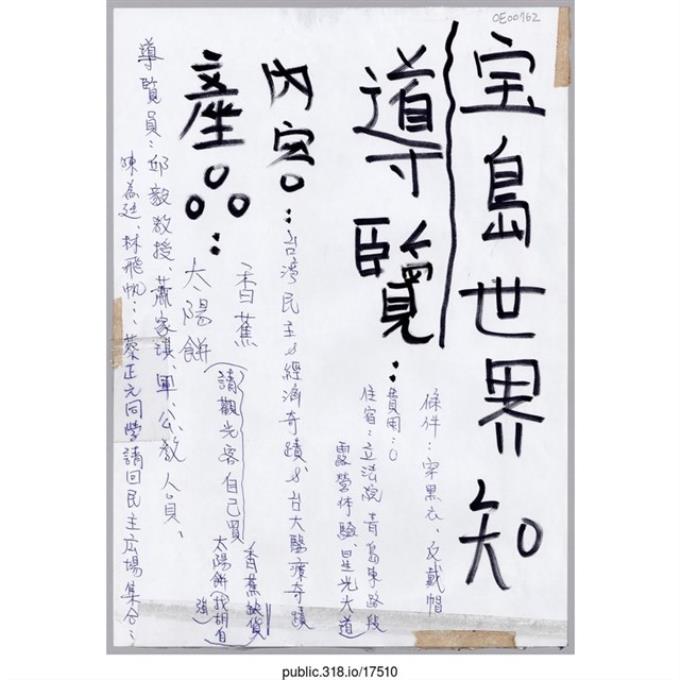 OE00762
宝島世界知
導覽：
條件：穿黑衣、反戴帽
費用：0
住宿：立法院青島東路段
露營体驗、星光大道
內容：台湾民主&經濟奇蹟、&台大醫療奇蹟
產品：
香蕉
太陽餅
(請觀光客自己買
香蕉缺貨
太陽餅(找胡自強)
導覽員：邱毅教授、蕭家淇、軍、公教人員、
陳為廷、林飛帆…蔡正元同學請回民主広場集合…
public.318.io/17510